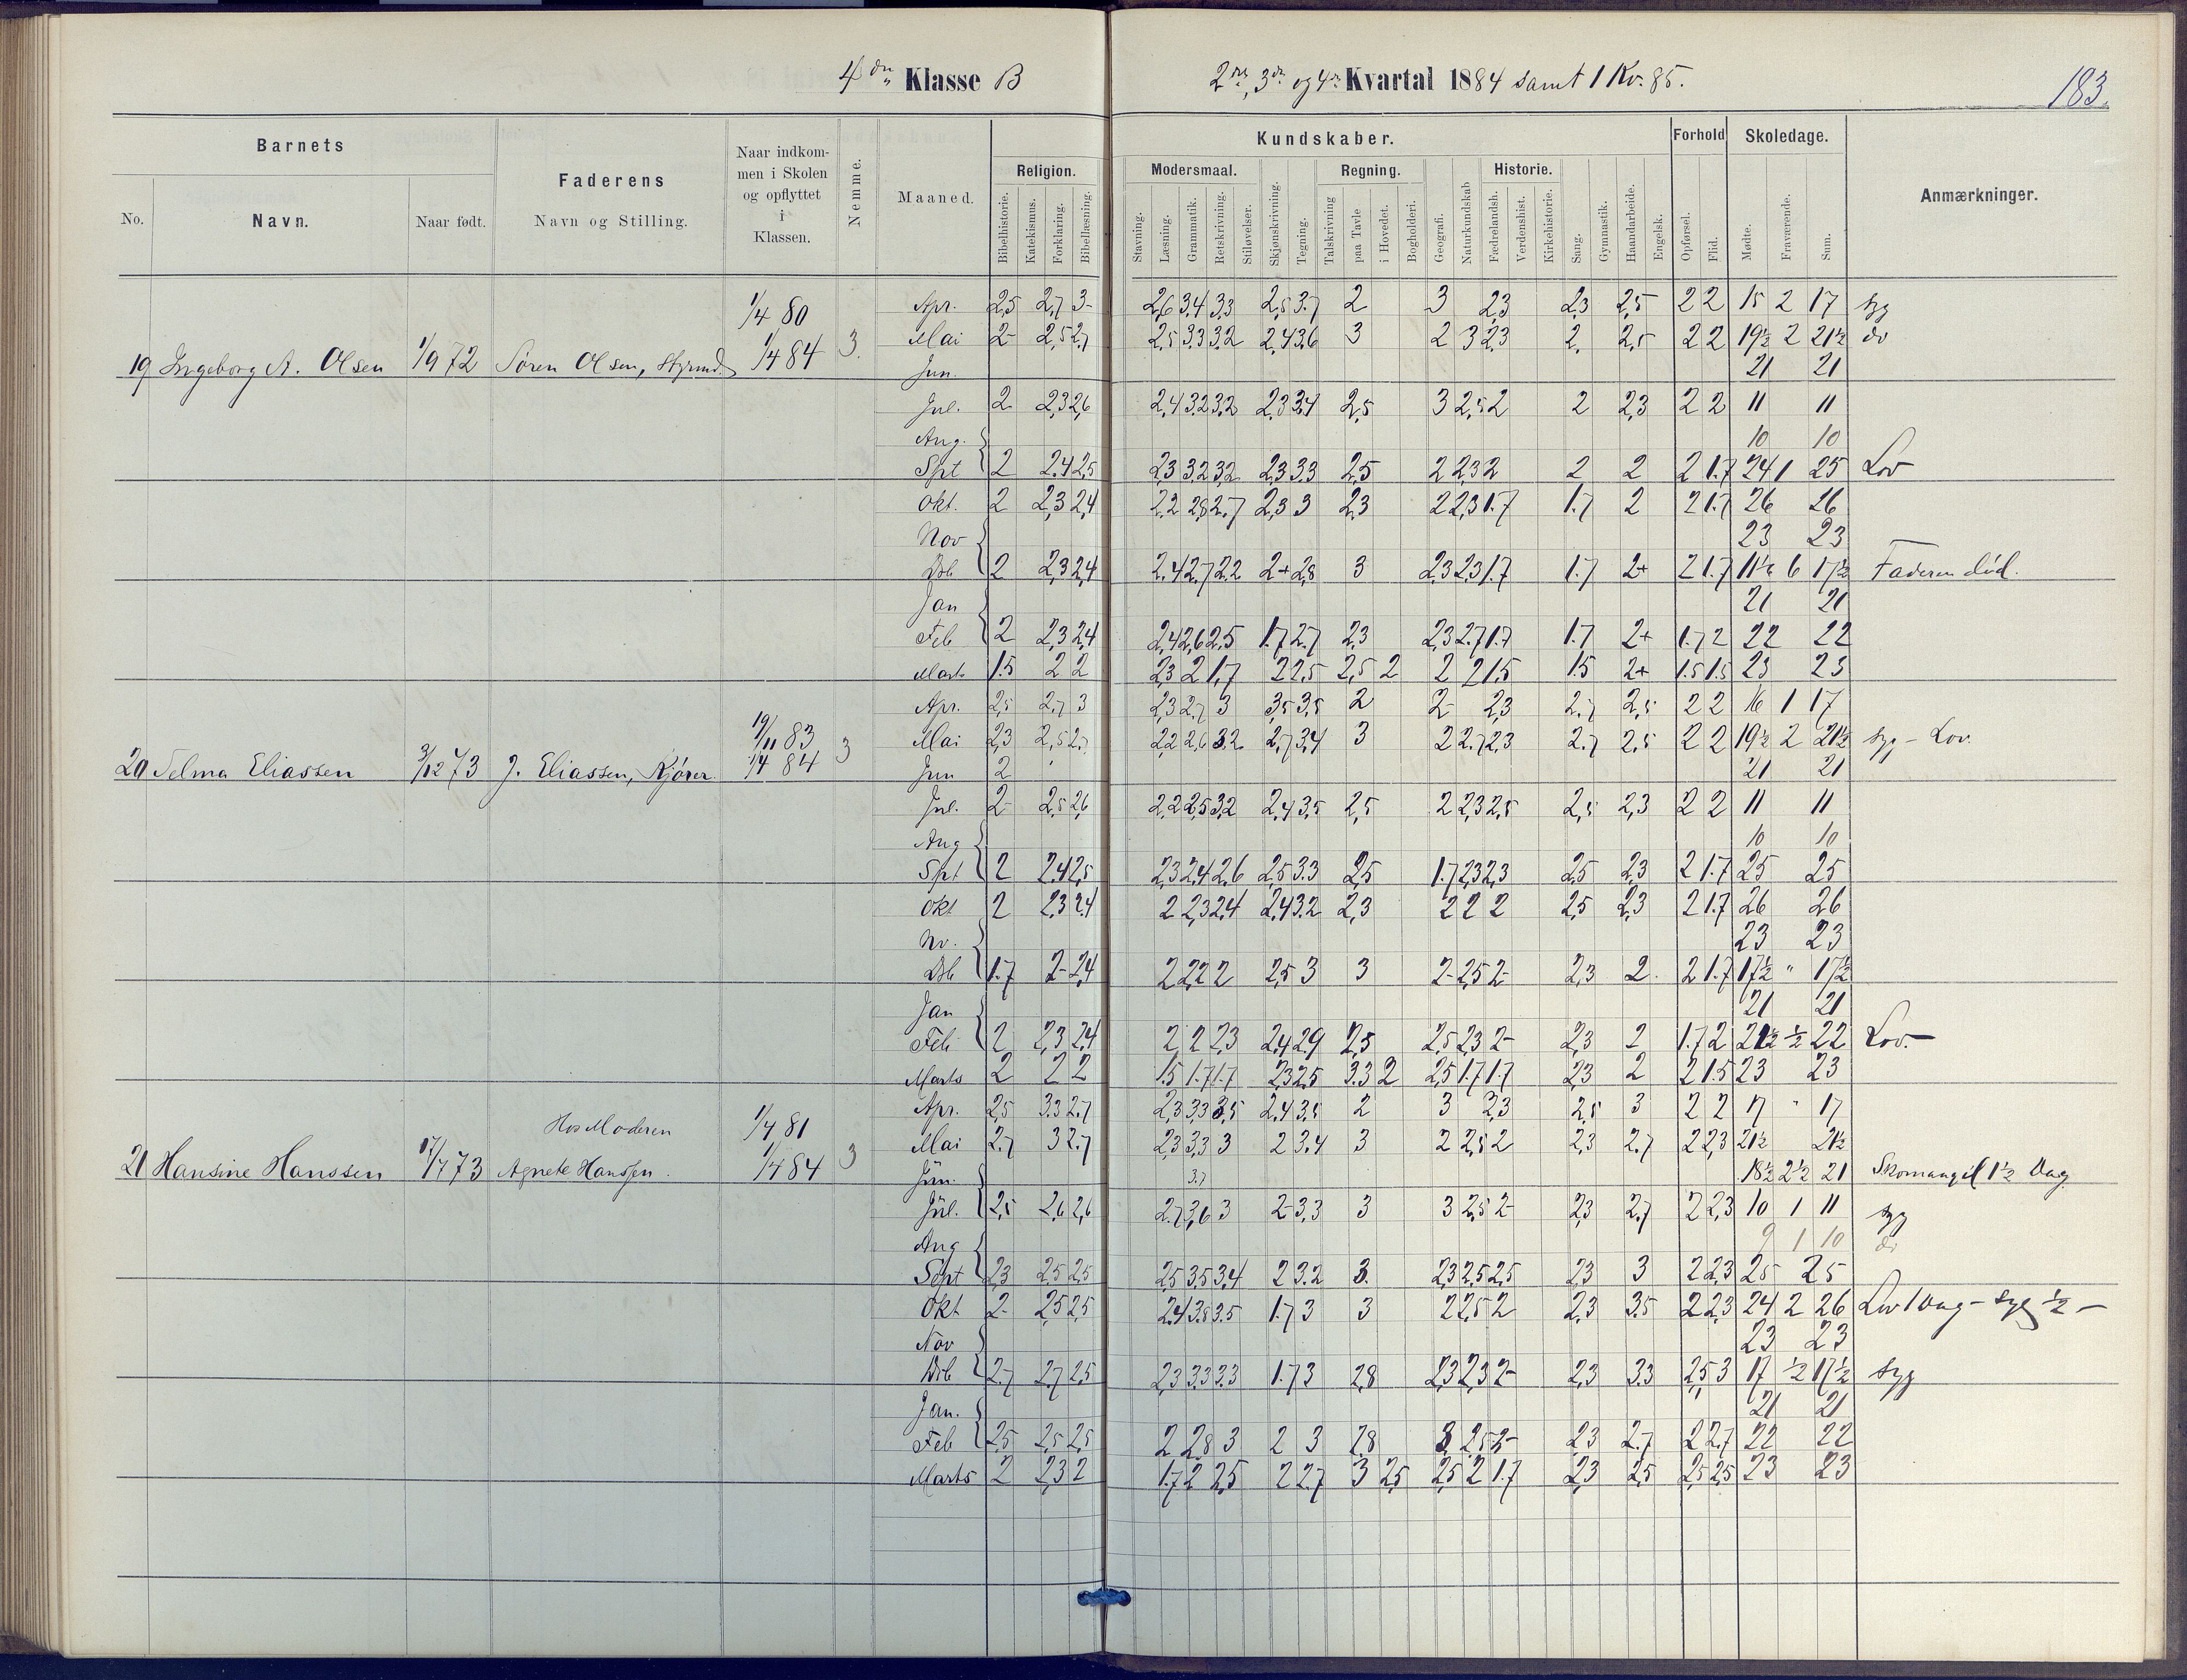 4de Klasse B
2det, 3die og 4de Kvartal 1884 samt 1 Kv. 85.
183.
Barnets
Faderens
Naar indkom-
men i Skolen
og opflyttet
i
Klassen.
Nemme.
Maaned.
Kundskaber.
Forhold
Skoledage.
Anmærkninger.
No.
Navn.
Naar født.
Navn og Stilling.
Religion.
Modersmaal.
Regning.
Historie.
Bibelhistorie.
Katekismus.
Forklaring.
Bibellæsning.
Stavning.
Læsning.
Grammatik.
Retskrivning.
Stiløvelser.
Skjønskrivning.
Tegning.
Talskrivning
paa Tavle
i Hovedet.
Bogholderi.
Geografi.
Naturkundskab
Fædrelandsh.
Verdenshist.
Kirkehistorie.
Sang.
Gymnastik.
Haandarbeide.
Engelsk.
Opførsel.
Flid.
Mødte.
Fraværende.
Sum.
19 Ingeborg A. Olsen 1/9 72 Søren Olsen, Styrmd. 1/4 80 1/4 84 3.
Apr. 2,5 2,7 3- 2,6 3.4 3,3 2,5 3.7 2 3 2,3 2,3 2,5 2 2 15 2 17 syg
Mai 2- 2,5 2,7 2,5 3.3 3.2 2,4 3.6 3 2 3 2,3 2, 2,5 2 2 19½ 2 21½ do
Jun. 21 21
Jul. 2 2,3 2,6 2,4 3.2 3,2 2,3 3,4 2,5 3 2,5 2 2 2,3 2 2 11 11
Aug. 10 10
Spt 2 2.4 2,5 2,3 3.2 3,2 2,3 3.3 2,5 2 2,3 2 2 2 2 1.7 24 1 25 Lov
Okt. 2 2,3 2,4 2,2 2,8 2.7 2,3 3 2,3 2 2,3 1.7 1.7 2 2 1.7 26 26
Nov 23 23
Dsb 2 2,3 2,4 2.4 2.7 2.2 2+ 2,8 3 2,3 2,3 1.7 1.7 2+ 2 1.7 11½ 6 17½ Faderen död.
Jan 21 21
Feb 2 2,3 2,4 2,4 2,6 2,5 1.7 2.7 2,3 2,3 2.7 1.7 1.7 2+ 1.7 2 22 22
Marts 1.5 2 2 2,3 2 1,7 2 2,5 2,5 2 2 2 1.5 1.5 2+ 1.5 1.5 23 23
20 Selma Eliassen 3/12 73 J. Eliassen, Kjører. 19/11 83 1/4 84 3
Apr. 2,5 2.7 3 2,3 2.7 3 3,5 3,5 2 2- 2,3 2.7 2,5 2 2 16 1 17
Mai 2,3 2,5 2.7 2,2 2,6 3.2 2,7 3,4 3 2 2.7 2,3 2.7 2,5 2 2 19½ 2 21½ syg - Lov.
Jun 2 21 21
Jul. 2- 2,5 2,6 2,2 2,5 3,2 2,4 3,5 2,5 2 2,3 2,5 2,5 2,3 2 2 11 11
Aug 10 10
Spt 2 2.4 2,5 2,3 2,4 2.6 2,5 3.3 2,5 1.7 2,3 2,3 2,5 2,3 2 1.7 25 25
Okt 2 2,3 2.4 2 2,3 2,4 2,4 3.2 2,3 2 2 2 2,5 2,3 2 1.7 26 26
Nv. 23 23
Dsb 1.7 2- 2,4 2 2,2 2 2,5 3 3 2- 2,5 2- 2,3 2. 2 1.7 17½ " 17½
Jan 21 21
Feb 2 2,3 2,4 2 2 2,3 2,4 2,9 2,5 2,5 2,3 2- 2,3 2 1.7 2 21½ ½ 22 Lov. -
Marts 2 2 2 1.5 1.7 1.7 2,3 2,5 3.3 2 2,5 1.7 1.7 2,3 2 2 1.5 23 23
21 Hansine Hanssen 17/7 73 Hos Moderen Agnete Hanssen. 1/4 81 1/4 84 3
Apr. 2,5 3.3 2.7 2,3 3,3 3,5 2,4 3,5 2 3 2,3 2,5 3 2 2 17 " 17
Mai 2.7 3 2.7 2,3 3,3 3 2 3.4 3 2 2,5 2 2,3 2.7 2 2,3 21½ 21½
Jun. 3.7 18½ 2½ 21 Skomangel 1½ Dag
Jul. 2,5 2,6 2,6 2.7 3,6 3 2- 3,3 3 3 2,5 2- 2,3 2.7 2 2,3 10 1 11 syg
Aug 9 1 10 do
Sept 2,3 2.5 2,5 2,5 3.5 3,4 2 3.2 3. 2,3 2,5 2,5 2,3 3 2 2,3 25 25
Okt 2- 2,5 2,5 2.4 3.8 3.5 1.7 3 3 2 2,5 2 2,3 3.5 2 2,3 24 2 26 Lov 1 Dag - syg ½ -
Nov 23 23
Dsb 2.7 2,7 2,5 2,3 3.3 3.3 1.7 3 2,8 2,3 2,3 2- 2,3 3.3 2,5 3 17 ½ 17½ syg
Jan. 21 21
Feb 2,5 2,5 2,5 2 2,8 3 2 3 2,8 3 2,5 2- 2,3 2.7 2 2.7 22 22
Marts 2 2,3 2 1.7 2 2,5 2 2.7 3 2,5 2,5 2 1.7 2,3 2,5 2,5 2,5 23 23